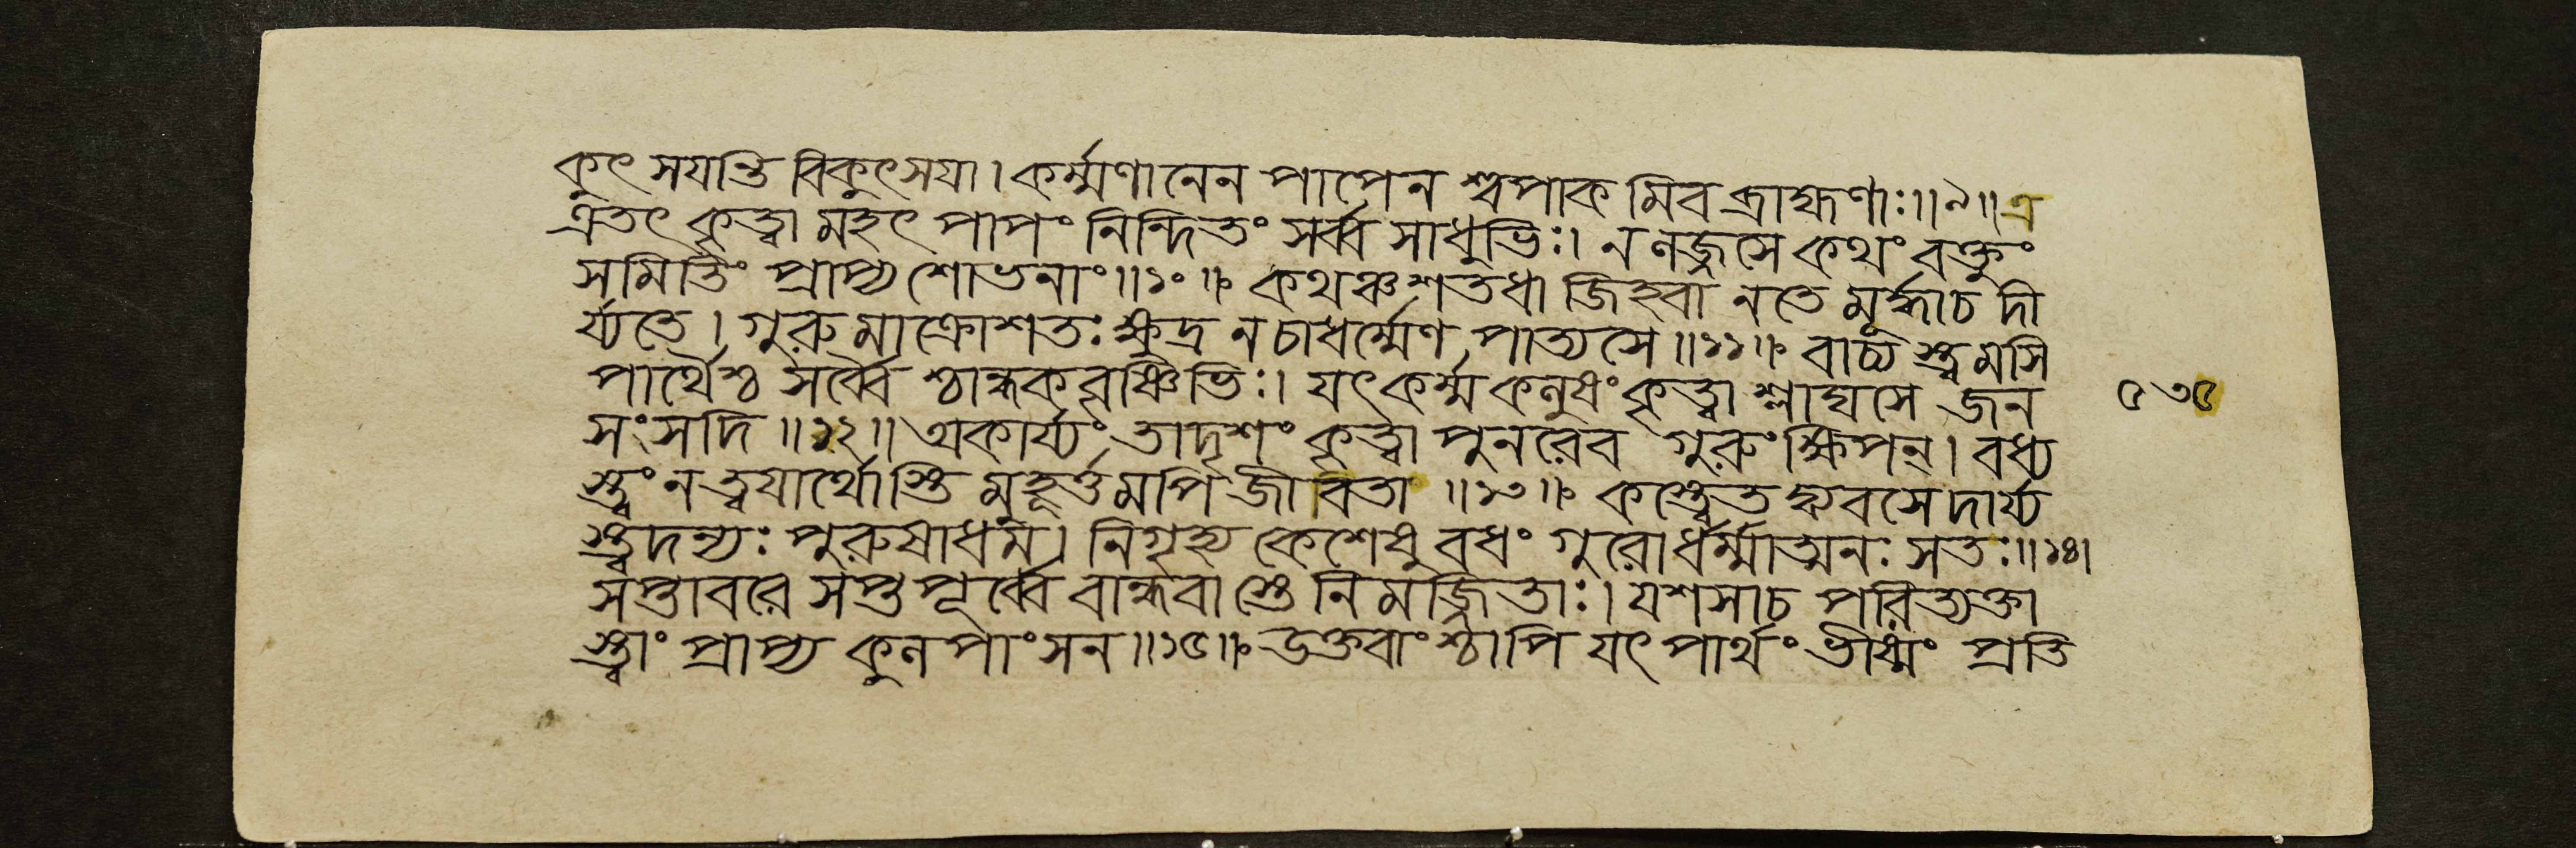 কুৎসযন্তি বিকুৎসযা। কর্ম্মণানেন পাপেন শ্বপাকমিব ব্রাহ্মণাঃ॥৯॥এ
এতৎ কৃত্বা মহৎ পাপং নিন্দিতং সর্ব্ব সাধুভিঃ। ন লজ্জসে কথং বক্তুং
সমিতিং প্রাপ্য শোভনাং॥১০॥ কথঞ্চ শতধা জিহ্বা নতে মূর্দ্ধাচ দী
র্য্যতে। গুরুমাক্রোশতঃ ক্ষুদ্র নচাধর্ম্মেণ পাত্যসে॥১১॥ বাচ্যস্ত্বমসি
পার্থৈশ্চ সর্ব্বৈ শ্চান্ধকবৃষ্ণিভিঃ। যৎ কর্ম্ম কলুষং কৃত্বা শ্লাঘসে জন
সংসদি॥১২॥ অকার্য্যং তাদৃশং কৃত্বা পুনরেব গুরুং ক্ষিপন্। বধ্য
স্ত্বং নত্বযার্থোস্তি মুহূর্ত্তমপি জীবতা॥১৩॥ কস্ত্বেতদ্ব্যবসেদার্য্য
স্ত্বদন্যঃ পুরুষাধম। নিগৃহ্য কেশেষু বধং গুরোর্ধর্ম্মাত্মনঃ সতঃ॥১৪।
সপ্তাবরে সপ্তপূর্ব্বে বান্ধবাস্তে নিমজ্জিতাঃ। যশসাচ পরিত্যক্তা
স্ত্বাং প্রাপ্য কুলপাংসন॥১৫॥ উক্তবাংশ্চাপি যৎ পার্থং ভীষ্মং প্রতি
৫৩৫